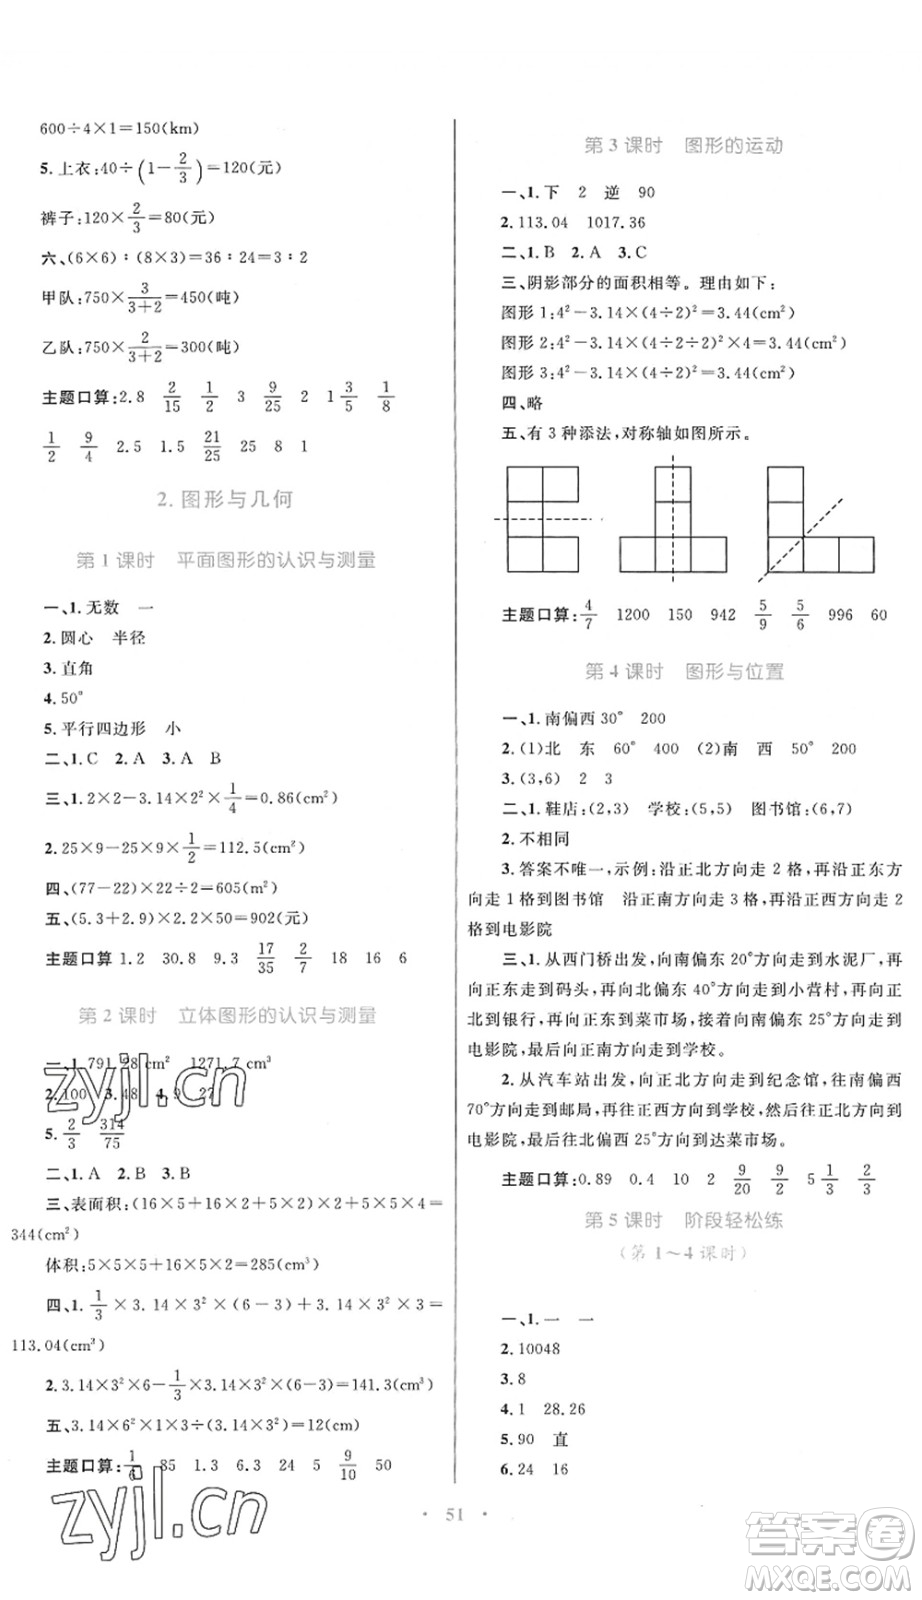 600÷4×1=150(km)
5.上衣:40÷(1－2/3)=120(元)
裤子:120×2/3=80(元)
六、(6×6)∶(8×3)=36∶24=3∶2
甲队:750×3/(3+2)=450(吨)
乙队:750×2/(3+2)=300(吨)
主题口算:2.8 2/15 1/2 3 9/25 2 1 3/5 1/8
1/2 9/4 2.5 1.5 21/25 25 8 1
2.图形与几何
第 1 课时 平面图形的认识与测量
一、1.无数 一
2.圆心 半径
3.直角
4.50°
5.平行四边形 小
二、1.C 2.A 3.A B
三、1.2×2－3.14×2²×1/4=0.86(cm²)
2.25×9－25×9×1/2=112.5(cm²)
四、(77－22)×22÷2=605(m²)
五、(5.3+2.9)×2.2×50=902(元)
主题口算 1.2 30.8 9.3 17/35 2/7 18 16 6
第 2 课时 立体图形的认识与测量
一、1.791.28 cm² 1271.7 cm³
2.100 3.48 4.9 27
5.2/3 314/75
二、1.A 2.B 3.B
三、表面积:(16×5+16×2+5×2)×2+5×5×4=
344(cm²)
体积:5×5×5+16×5×2=285(cm³)
四、1.1/3×3.14×3²×(6－3)+3.14×3²×3=
113.04(cm³)
2.3.14×3²×6－1/3×3.14×3²×(6－3)=141.3(cm³)
五、3.14×6²×1×3÷(3.14×3²)=12(cm)
主题口算:1/6 85 1.3 6.3 24 5 9/10 50
第 3 课时 图形的运动
一、1.下 2 逆 90
2.113.04 1017.36
二、1.B 2.A 3.C
三、阴影部分的面积相等。理由如下:
图形 1:4²－3.14×(4÷2)²=3.44(cm²)
图形 2:4²－3.14×(4÷2÷2)²×4=3.44(cm²)
图形 3:4²－3.14×(4÷2)²=3.44(cm²)
四、略
五、有 3 种添法,对称轴如图所示。
主题口算:4/7 1200 150 942 5/9 5/6 996 60
第 4 课时 图形与位置
一、1.南偏西 30° 200
2.(1)北 东 60° 400 (2)南 西 50° 200
3.(3,6) 2 3
二、1.鞋店:(2,3) 学校:(5,5) 图书馆:(6,7)
2.不相同
3.答案不唯一,示例:沿正北方向走 2 格,再沿正东方
向走 1 格到图书馆 沿正南方向走 3 格,再沿正西方向走 2
格到电影院
三、1.从西门桥出发,向南偏东 20°方向走到水泥厂,再
向正东走到码头,再向北偏东 40°方向走到小营村,再向正
北到银行,再向正东走到菜市场,接着向南偏东 25°方向走到
电影院,最后向正南方向走到学校。
2.从汽车站出发,向正北方向走到纪念馆,往南偏西
70°方向走到邮局,再往正西方向走到学校,然后往正北方向走到
电影院,最后往北偏西 25°方向到达菜市场。
主题口算:0.89 0.4 10 2 9/20 9/2 5 1/3 2/3
第 5 课时 阶段轻松练
(第 1～4 课时)
一、1.一 一
2.10048
3.8
4.1 28.26
5.90 直
6.24 16
· 51 ·
zyjl.cn
zyjl.cn
答案圈
MXQE.COM